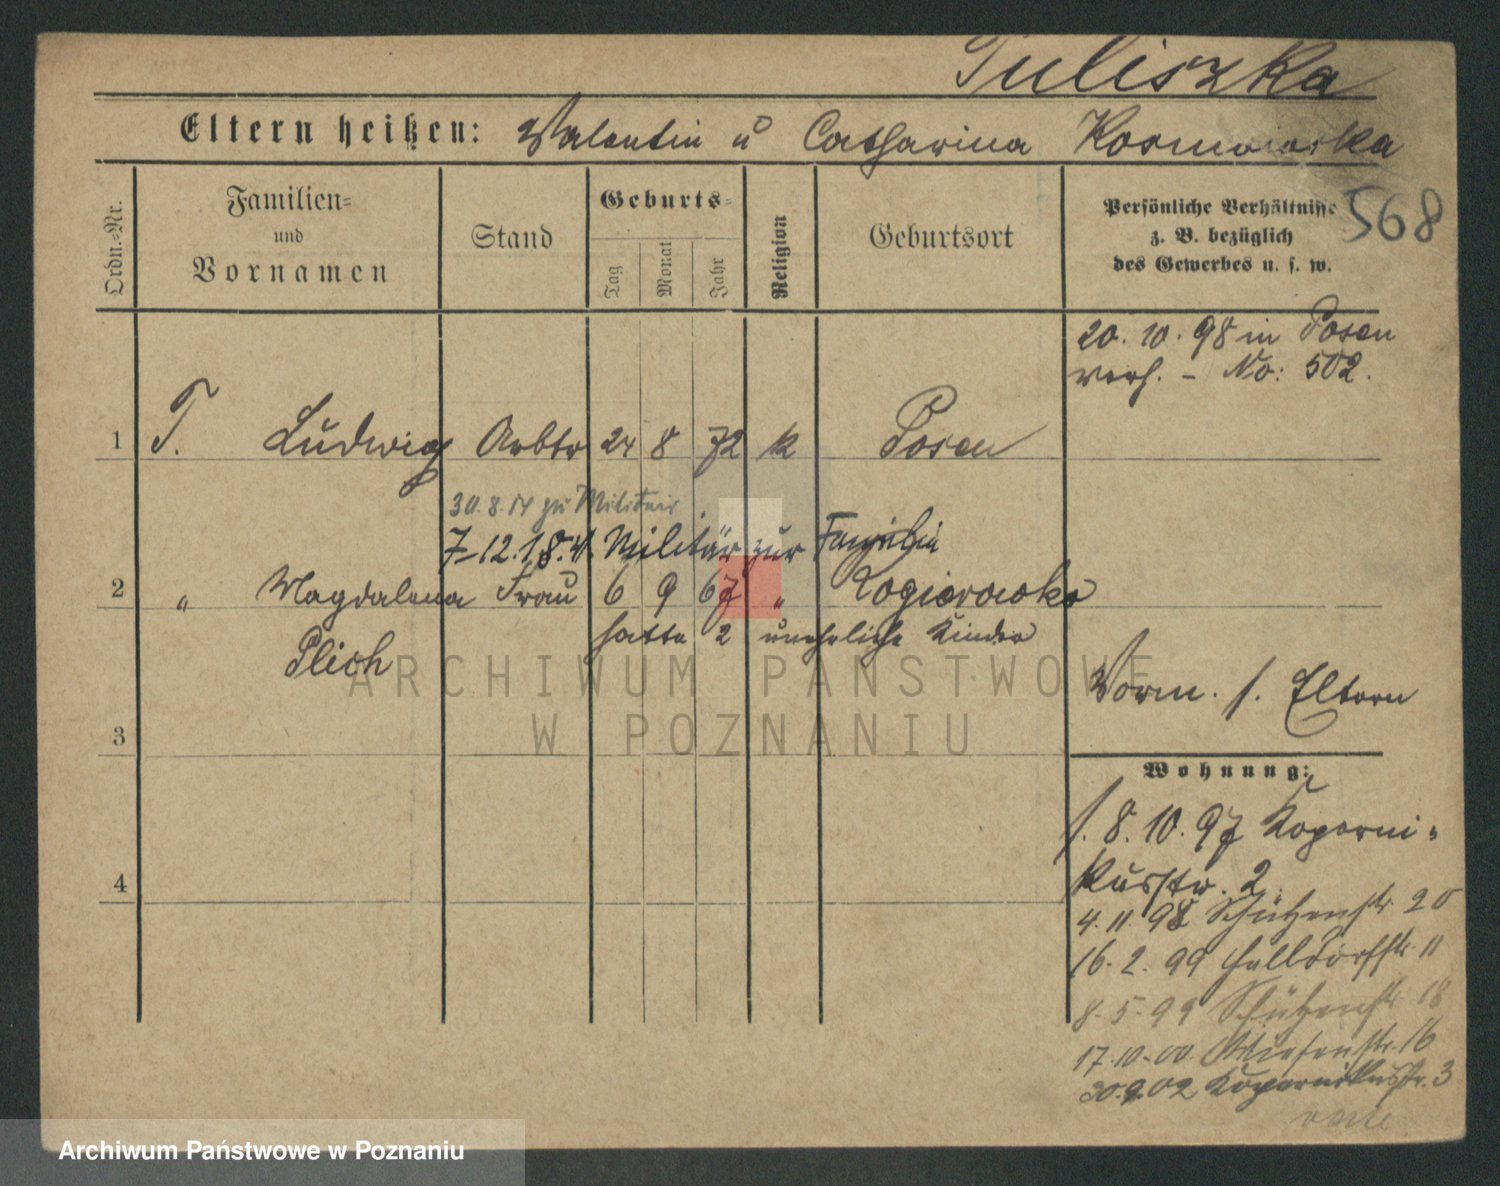 Tuliszka
Eltern heißen: Valentin u Catharina
568
Ordn.-Nr.
Familien-
und
Vornamen
Stand
Geburts-
Tag
Monat
Jahr
Religion
Geburtsort
Persönliche Verhältnisse
z. B. bezüglich
des Gewerbes u. s. w.
20. 10. 98 in Posen
verh. - No: 502.
1 T. Ludwig Arbtr 24 8 72 k Posen
30.8.14 zu Militair
Militär zur Familie
2 " Magdalena Frau 6 9 67 "
hatte 2 uneheliche Kinder
Plich
Vorm. s. Eltern
3
Wohnung:
s. 8. 10. 97 Koperni-
kusstr. 2.
4
4. 11. 98 Schützenstr 20
16. 2. 99 Halldorfstr. 11
8. 5. 99 Schützenstr. 18
17. 10. 00. Wiesenstr. 16
30.9.02 Kopernikusstr. 3
ARCHIWUM PAŃSTWOWE
W POZNANIU
Archiwum Państwowe w Poznaniu